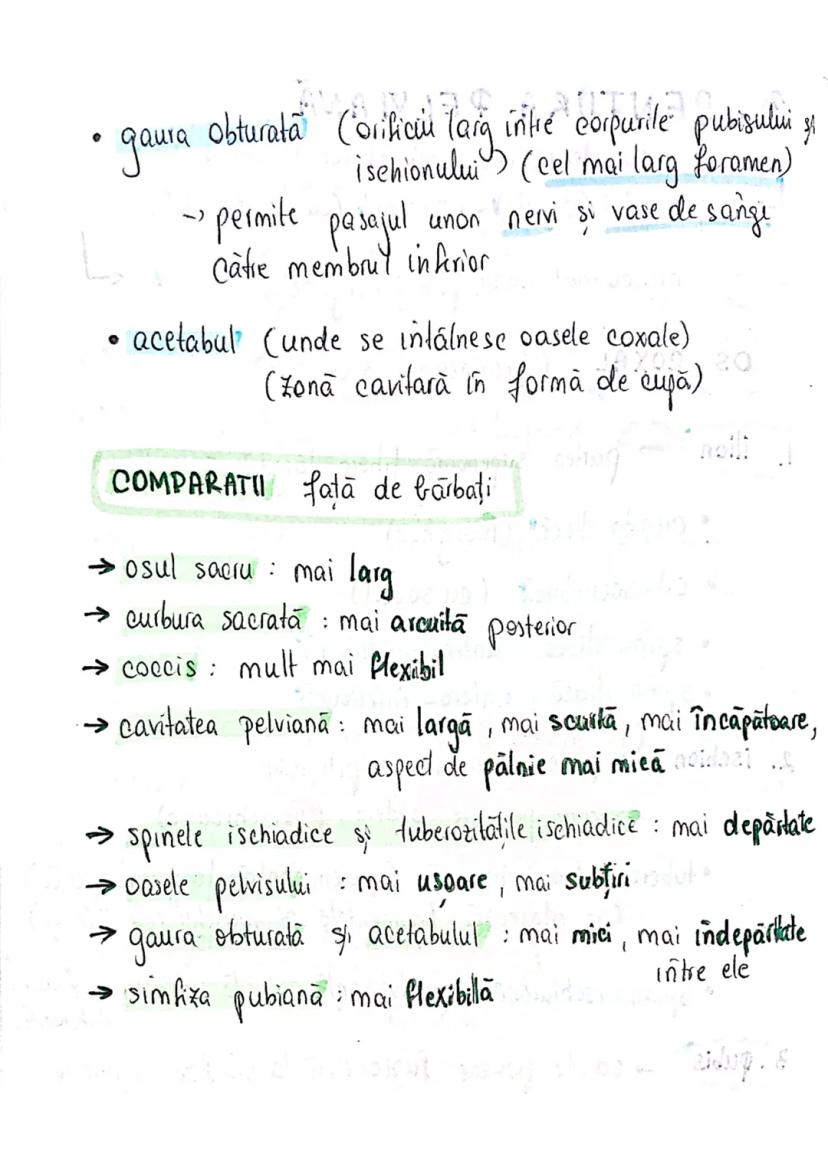 • gaura obturată (orificiu larg între corpurile pubisului și
ischionului) (cel mai larg foramen)
→ permite pasajul unor nervi și vase de sânge
către membrul inferior
• acetabul (unde se întâlnesc oasele coxale)
(zonă cavitară în formă de cupă)
COMPARATII față de bărbați
→ osul sacru : mai larg
→ curbura sacrată : mai arcuită posterior
→ coccis : mult mai flexibil
→ cavitatea pelviană : mai largă , mai scurtă , mai încăpătoare,
aspect de pâlnie mai mică
→ spinele ischiadice și tuberozitățile ischiadice : mai depărtate
→ oasele pelvisului : mai ușoare , mai subțiri
→ gaura obturată și acetabulul : mai mici , mai îndepărtate
între ele
→ simfiza pubiană : mai flexibilă